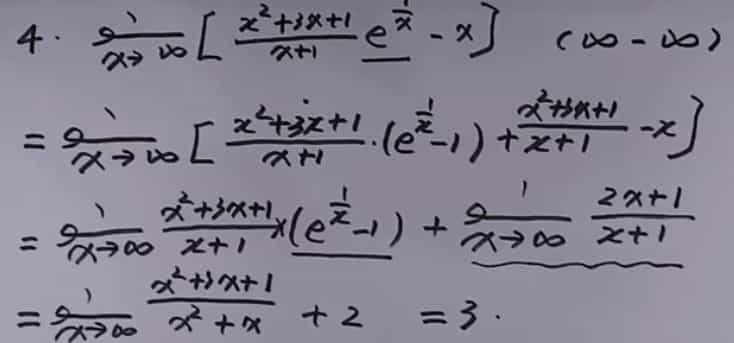 4. lim x→∞ [ (x²+3x+1)/(x+1) e^(1/x) - x ] (∞ - ∞)
= lim x→∞ [ (x²+3x+1)/(x+1) · (e^(1/x) - 1) + (x²+3x+1)/(x+1) - x ]
= lim x→∞ (x²+3x+1)/(x+1) × (e^(1/x) - 1) + lim x→∞ (2x+1)/(x+1)
= lim x→∞ (x²+3x+1)/(x²+x) + 2 = 3.